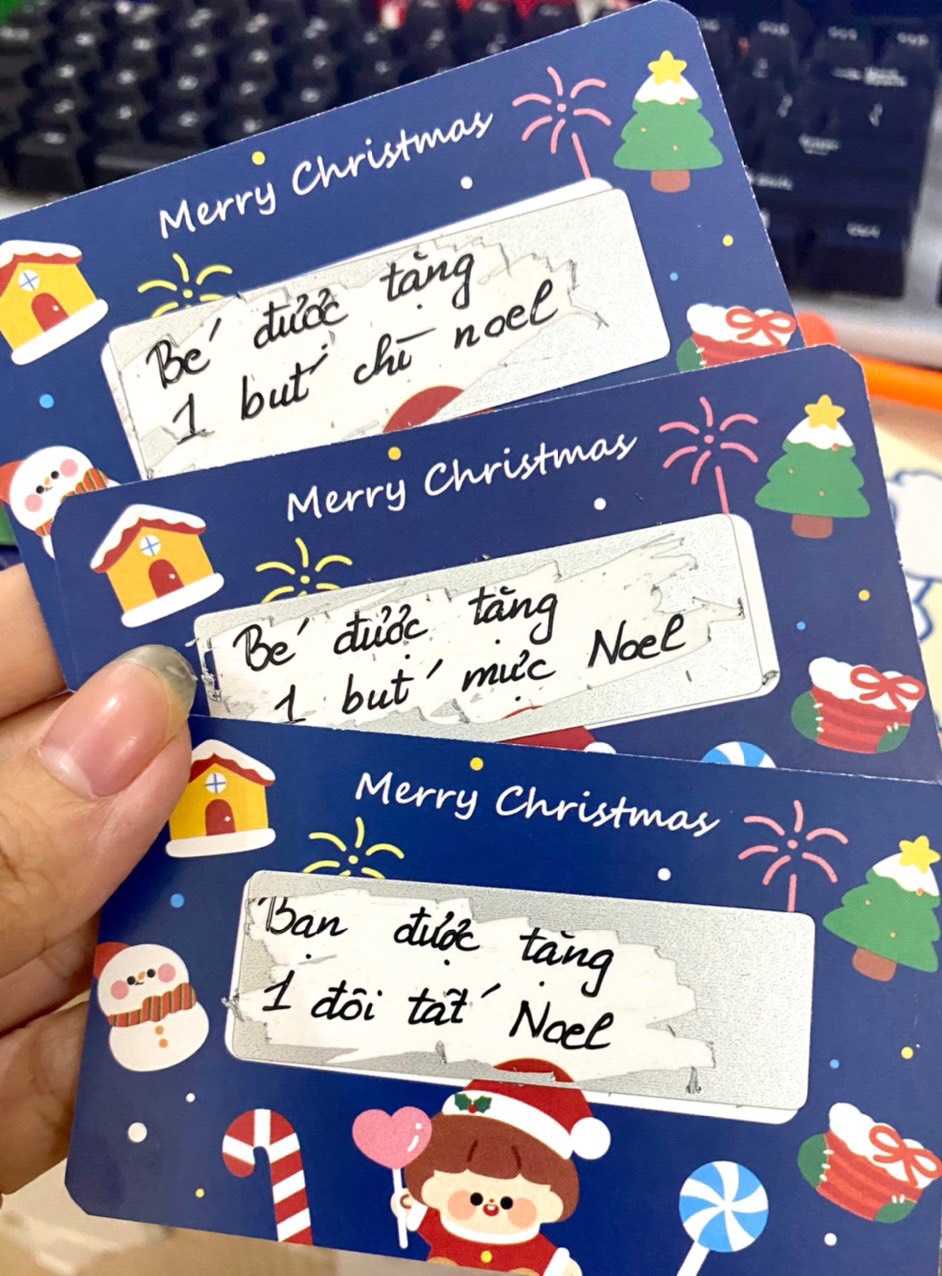 Merry Christmas
Bé được tặng
1 bút chì noel
Merry Christmas
Bé được tặng
1 bút mực Noel
Merry Christmas
Bạn được tặng
1 đôi tất Noel